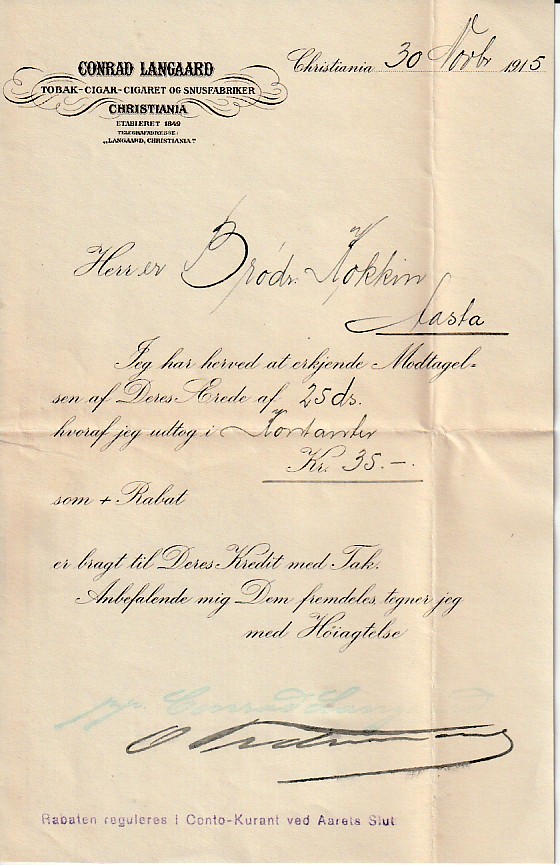 CONRAD LANGAARD
TOBAK-CIGAR-CIGARET OG SNUSFABRIKER
CHRISTIANIA
ETABLERET 1849
TELEGRAFADRESSE:
„LANGAARD, CHRISTIANIA"
Christiania 30 Novbr 1915
Herrer Brødr. Kokkin
Aasta
Jeg har herved at erkjende Modtagel-
sen af Deres Ærede af 25ds.
hvoraf jeg udtog i Kontanter
Kr. 35.-.
som + Rabat
er bragt til Deres Kredit med Tak.
Anbefalende mig Dem fremdeles, tegner jeg
med Höiagtelse
pp. Conrad Langaard
Rabaten reguleres i Conto-Kurant ved Aarets Slut